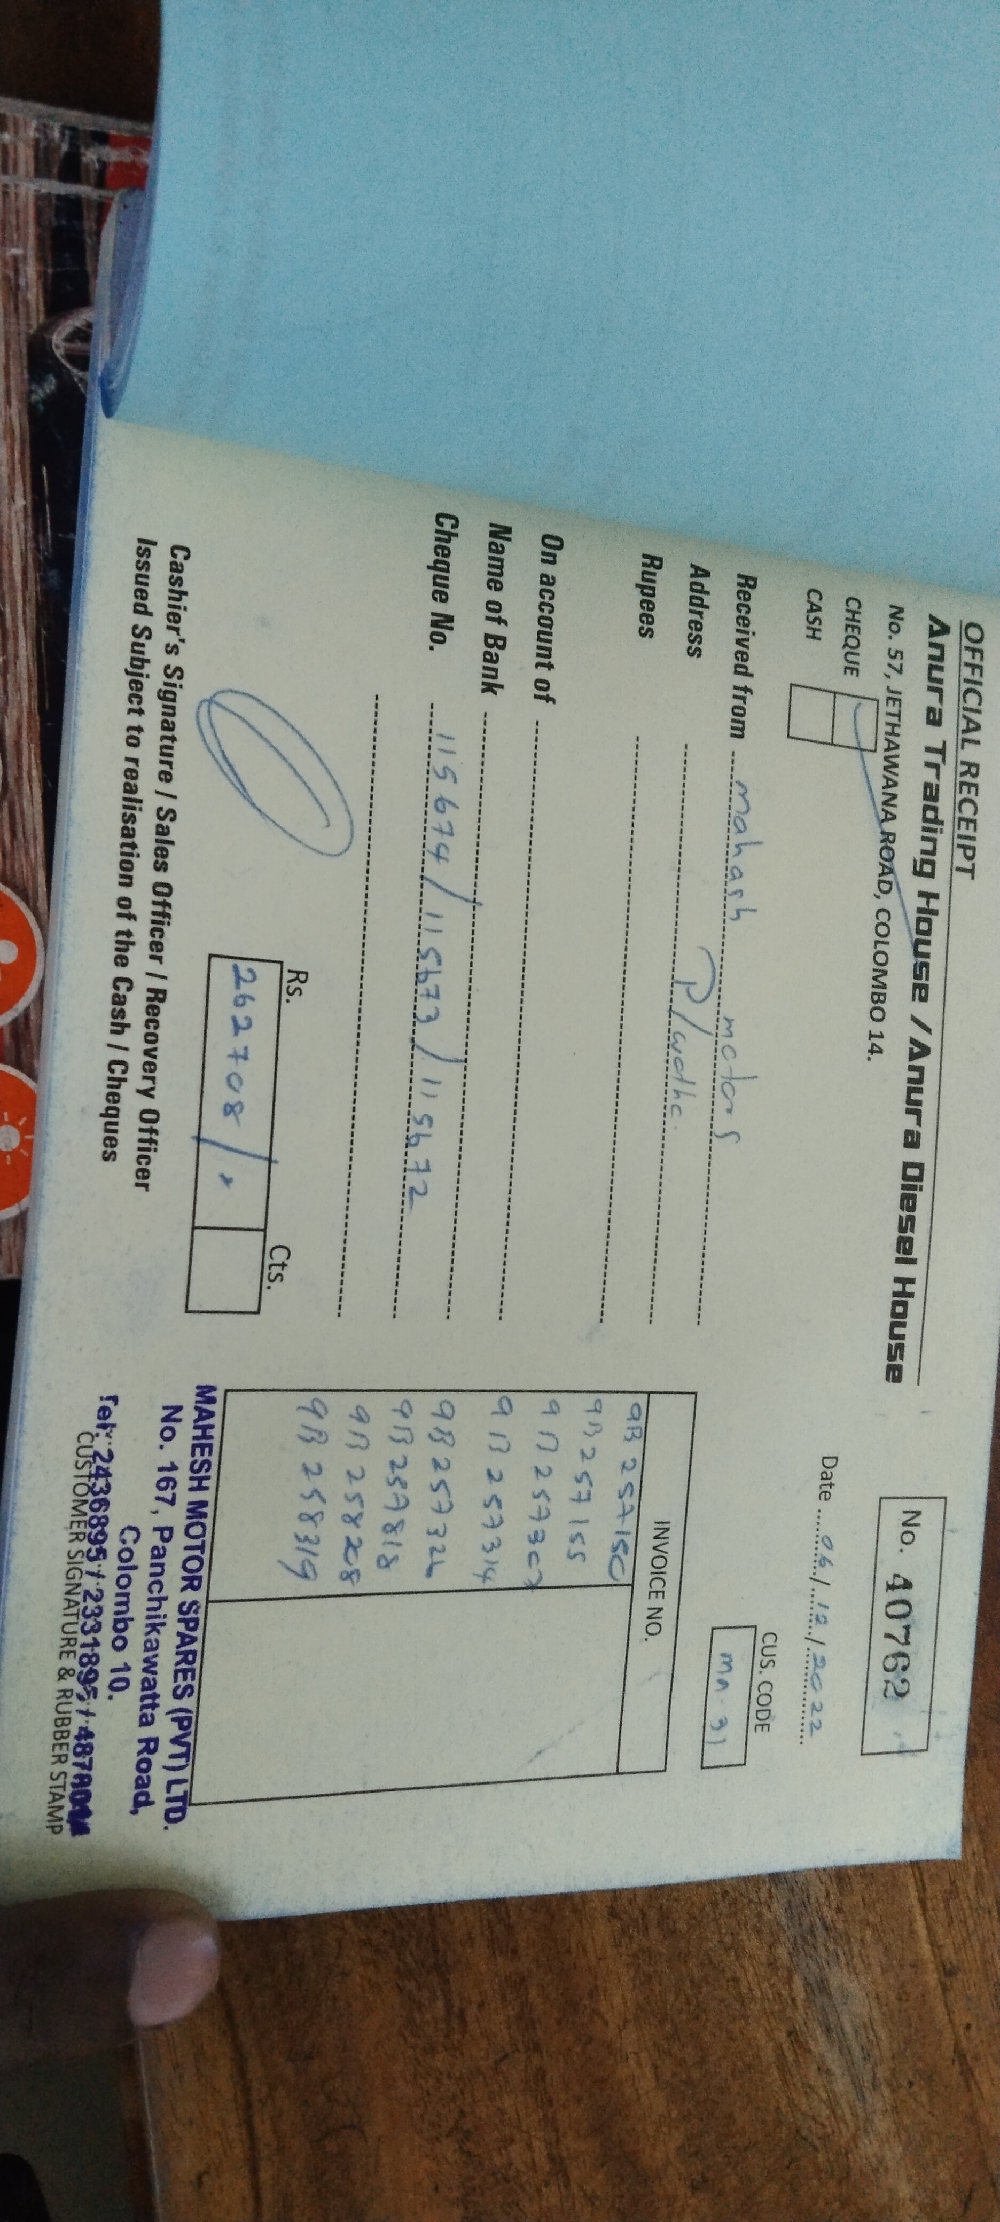 OFFICIAL RECEIPT
Anura Trading House / Anura Diesel House
No. 57, JETHAWANA ROAD, COLOMBO 14.
No. 40762
CHEQUE
CASH
Date 06/12/2022
CUS. CODE
Received from mahash motors
Address P/watha.
Rupees
On account of
Name of Bank
Cheque No. 115674/115673/115672
INVOICE NO.
257150
257155
257307
257314
257324
257818
258208
258319
Rs. Cts.
262708/
Cashier's Signature / Sales Officer / Recovery Officer
Issued Subject to realisation of the Cash / Cheques
MAHESH MOTOR SPARES (PVT) LTD.
No. 167, Panchikawatta Road,
Colombo 10.
Tel: 2436895 / 2331895 /
CUSTOMER SIGNATURE & RUBBER STAMP